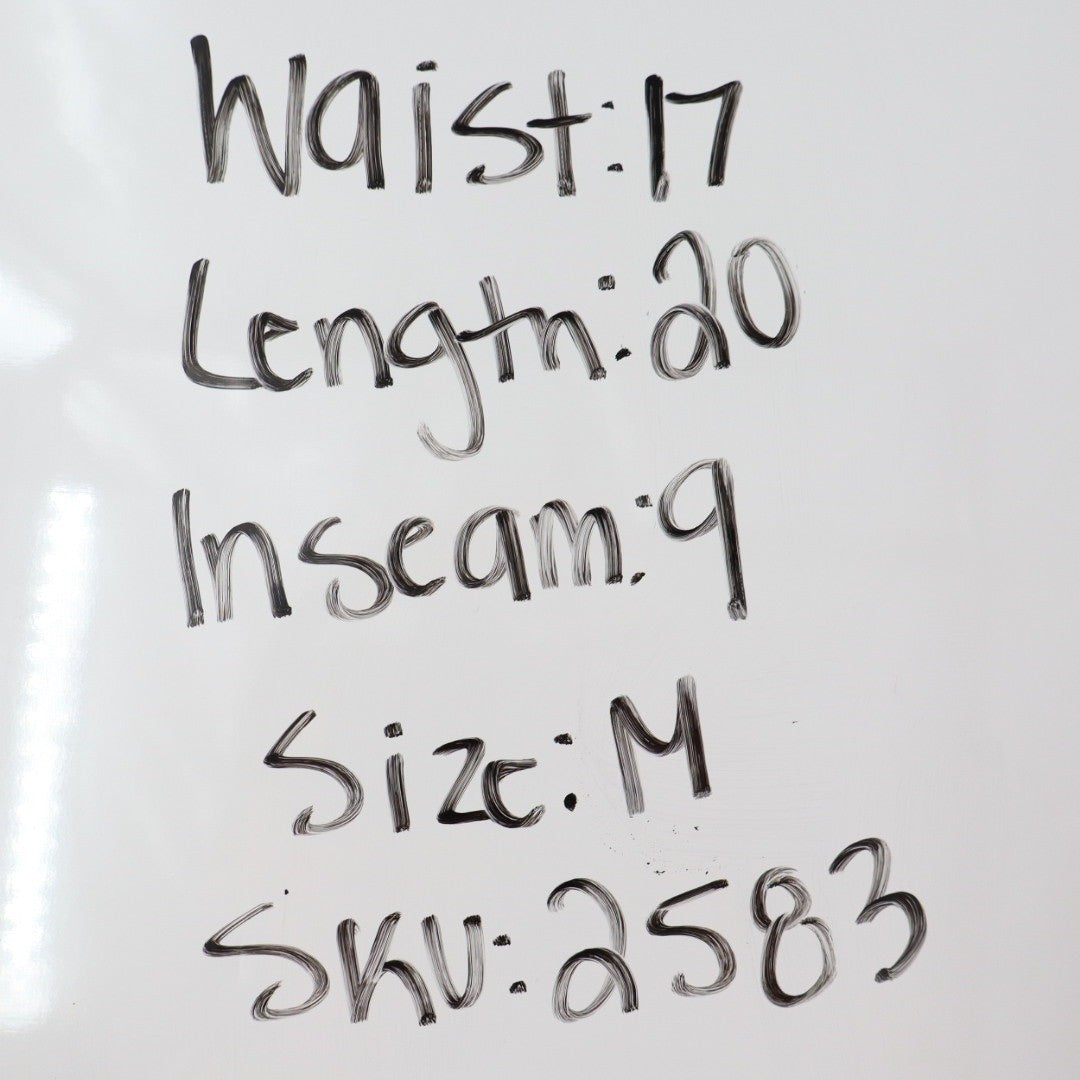 Waist: 17
Length: 20
Inseam: 9
Size: M
SKU: 2583